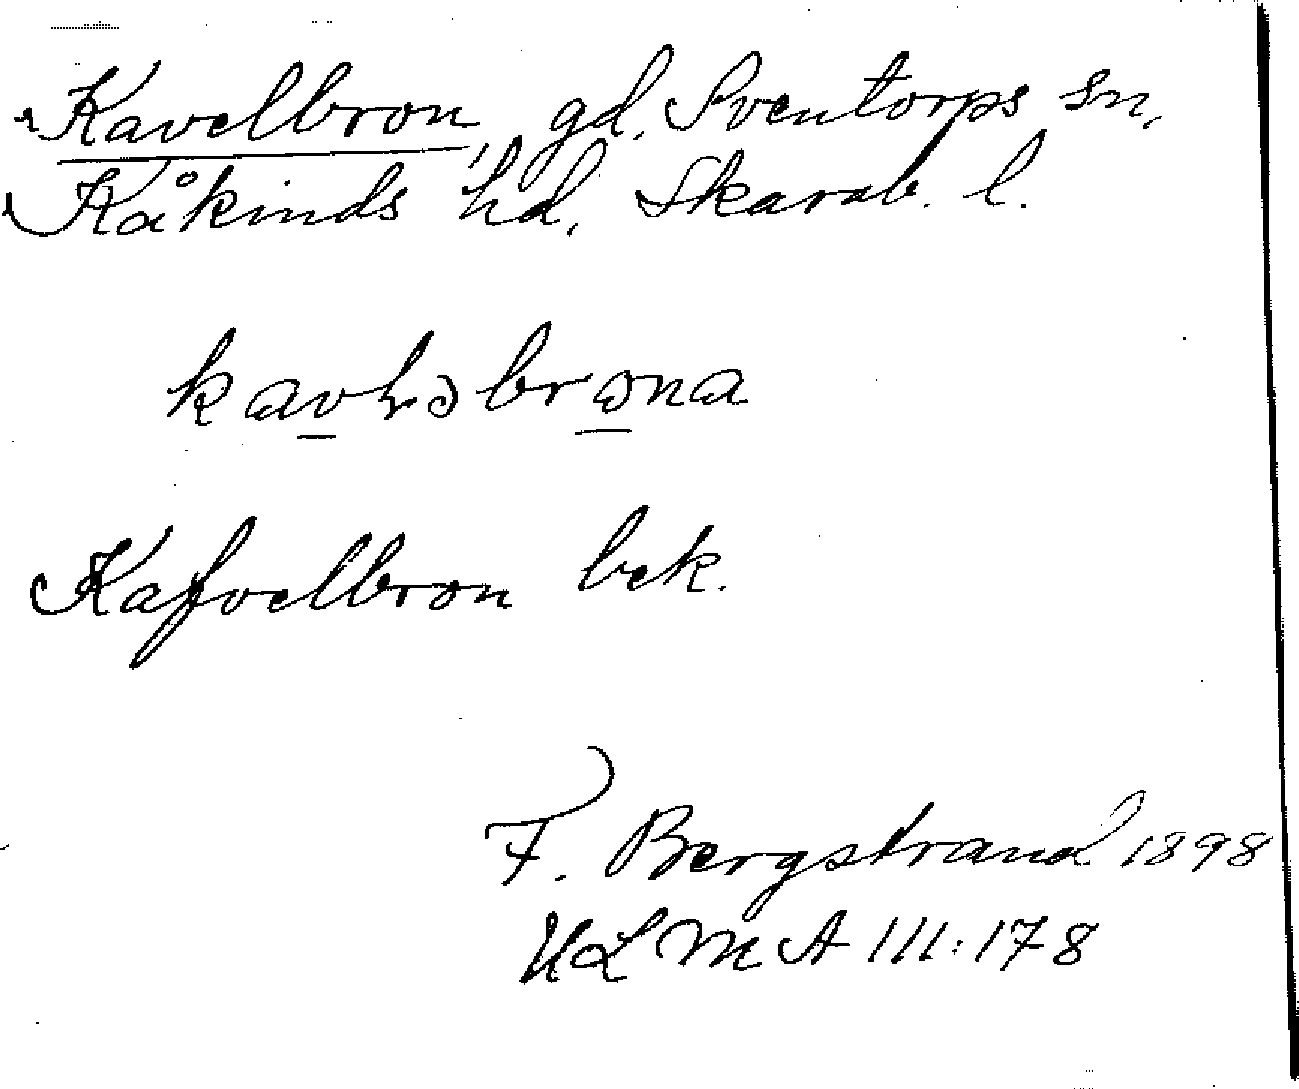 Kavelbron, gd, Sventorps sn,
Kåkinds hd, Skarab. l.
kavɫəbrωna
Kafvelbron bek.
F. Bergstrand 1898
ULMA 111:178